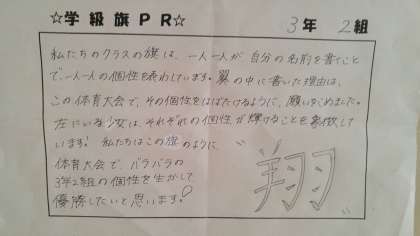 ☆学級旗PR☆ 3年 2組
私たちのクラスの旗は、一人一人が自分の名前を書くこと
で、一人一人の個性を表わしています。翼の中に書いた理由は、
この体育大会で、その個性をはばたけるように、願いをこめました。
左にいる少女は、それぞれの個性が輝けることを象徴して
います。私たちはこの旗のように
体育大会で、バラバラの
3年2組の個性を生かして
優勝したいと思います!
"翔"